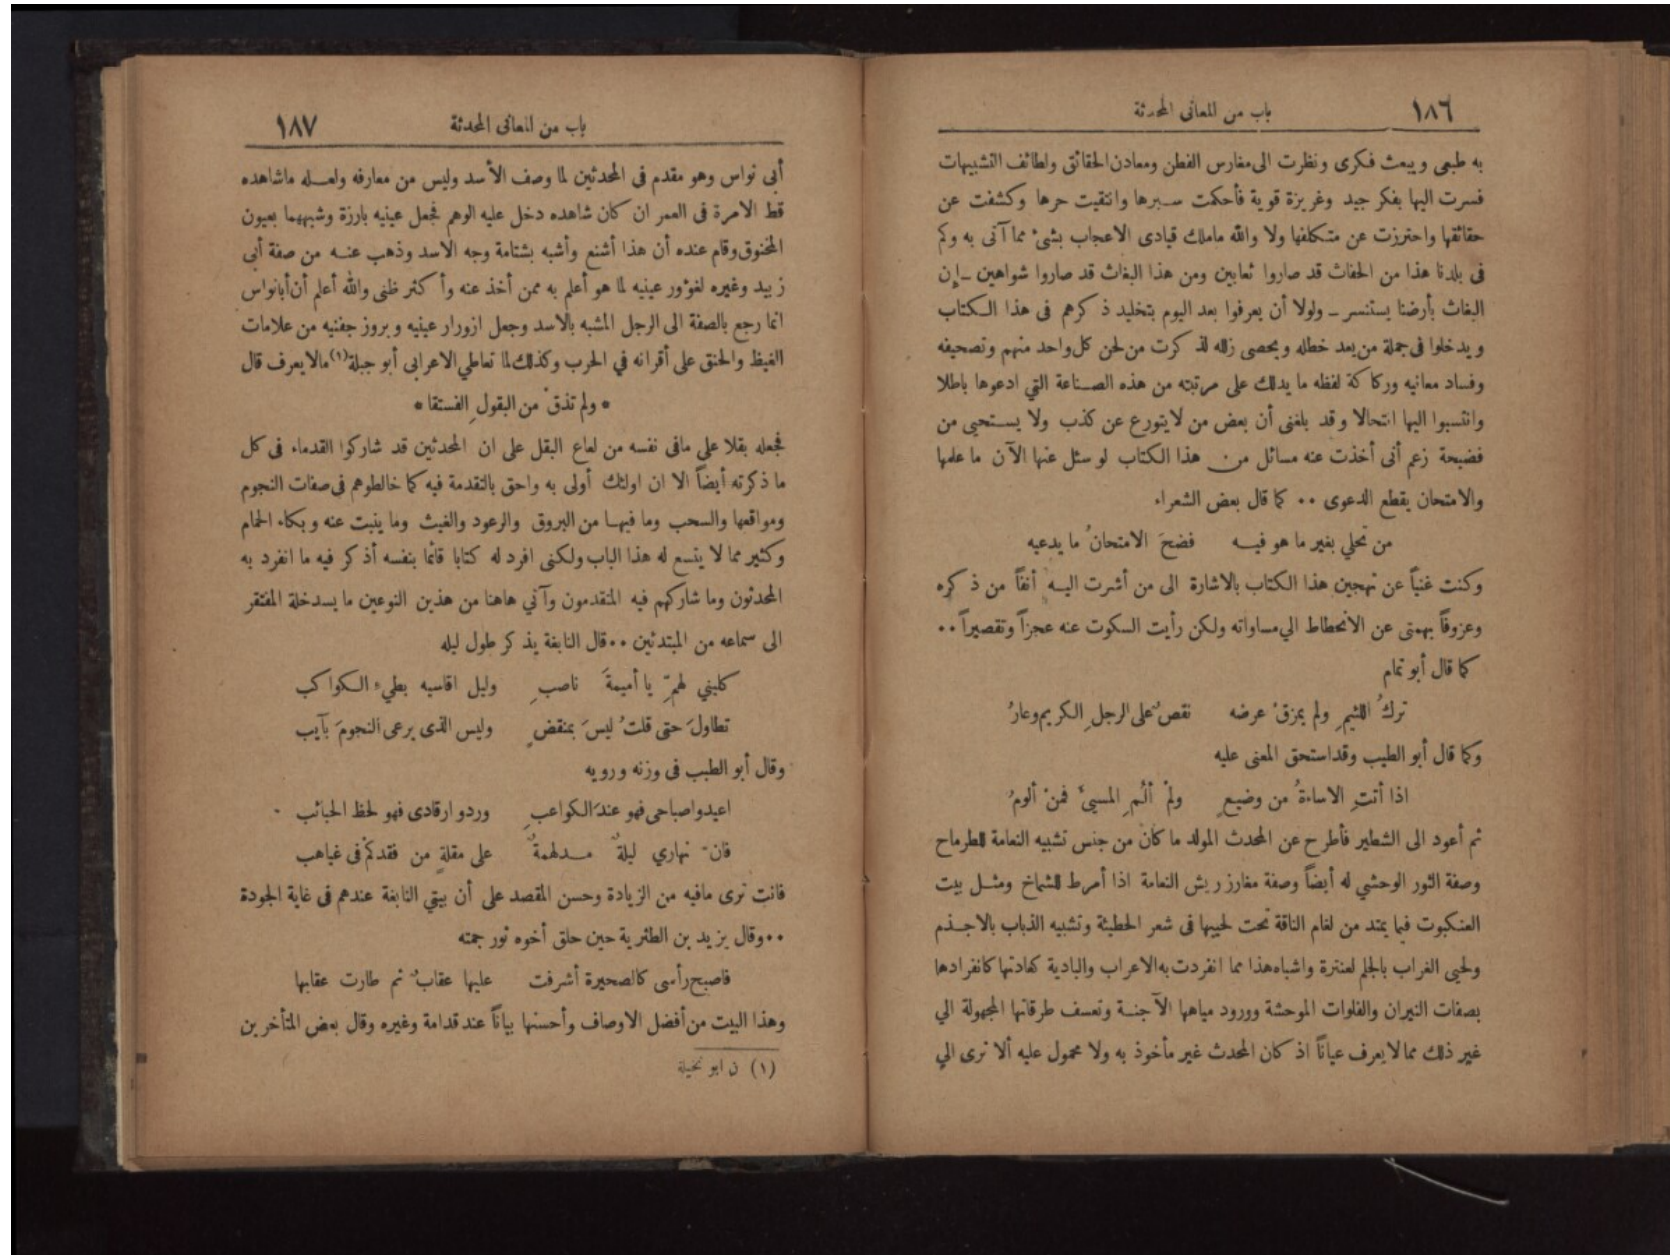 ١٨٦
باب من المعانى المحدثة
به طبعى ويبعث فكرى ونظرت الى مغارس الفطن ومعادن الحقائق ولطائف التشبيهات
فسرت اليها بفكر جيد وغريزة قوية فأحكمت سبرها وانتقيت حرها وكشفت عن
حقائقها واحترزت عن متكلفها ولا والله ماملك قيادى الاعجاب بشئ مما آتى به وكم
فى بلدنا هذا من الحفاث قد صاروا ثعابين ومن هذا البغاث قد صاروا شواهين ـ إن
البغاث بأرضنا يستنسر ـ ولولا أن يعرفوا بعد اليوم بتخليد ذكرهم فى هذا الكتاب
ويدخلوا فى جملة من يعد خطله ويحصى زلله لذكرت من لحن كل واحد منهم وتصحيفه
وفساد معانيه وركاكة لفظه ما يدلك على مرتبته من هذه الصناعة التي ادعوها باطلا
وانتسبوا اليها انتحالا وقد بلغنى أن بعض من لايتورع عن كذب ولا يستحيى من
فضيحة زعم أنى أخذت عنه مسائل من هذا الكتاب لو سئل عنها الآن ما علمها
والامتحان يقطع الدعوى ٠٠ كما قال بعض الشعراء
من تحلي بغير ما هو فيه فضحَ الامتحانُ ما يدعيه
وكنت غنياً عن تهجين هذا الكتاب بالاشارة الى من أشرت اليه أنفاً من ذكره
وعزوفاً بهمتى عن الانحطاط الي مساواته ولكن رأيت السكوت عنه عجزاً وتقصيراً ٠٠
كما قال أبو تمام
تركُ اللئيمِ ولم يمزقْ عرضه نقصٌ على الرجلِ الكريم وعارُ
وكما قال أبو الطيب وقداستحق المعنى عليه
اذا أتتِ الاساءةُ من وضيعٍ ولمْ ألُمِ المسيئَ فمنْ ألومُ
ثم أعود الى الشطير فأطرح عن المحدث المولد ما كان من جنس تشبيه النعامة للطرماح
وصفة الثور الوحشي له أيضاً وصفة مغارز ريش النعامة اذا أمرط للشماخ ومثل بيت
العنكبوت فيما يمتد من لغام الناقة تحت لحييها فى شعر الحطيئة وتشبيه الذباب بالاجذم
ولحيى الغراب بالجلم لعنترة واشباه هذا مما انفردت به الاعراب والبادية كعادتها كانفرادها
بصفات النيران والفلوات الموحشة وورود مياهها الآجنة وتعسف طرقاتها المجهولة الي
غير ذلك مما لايعرف عياناً اذ كان المحدث غير مأخوذ به ولا محمول عليه ألا ترى الي
باب من المعانى المحدثة
١٨٧
أبى نواس وهو مقدم فى المحدثين لما وصف الأسد وليس من معارفه ولعله ماشاهده
قط الامرة فى العمر ان كان شاهده دخل عليه الوهم فجعل عينيه بارزة وشبههما بعيون
المخنوق وقام عنده أن هذا أشنع وأشبه بشتامة وجه الاسد وذهب عنه من صفة أبى
زبيد وغيره لغؤور عينيه لما هو أعلم به ممن أخذ عنه وأكثر ظنى والله أعلم أن أبانواس
انما رجع بالصفة الى الرجل المشبه بالاسد وجعل ازورار عينيه وبروز جفنيه من علامات
الغيظ والحنق على أقرانه في الحرب وكذلك لما تعاطي الاعرابى أبو جبلة(١) مالا يعرف قال
* ولم تذقْ من البقولِ الفستقا *
فجعله بقلا على مافى نفسه من لعاع البقل على ان المحدثين قد شاركوا القدماء فى كل
ما ذكرته أيضاً الا ان اولئك أولى به واحق بالتقدمة فيه كما خالطوهم فى صفات النجوم
ومواقعها والسحب وما فيها من البروق والرعود والغيث وما ينبت عنه وبكاء الحمام
وكثير مما لا يتسع له هذا الباب ولكنى افرد له كتابا قائما بنفسه أذكر فيه ما انفرد به
المحدثون وما شاركهم فيه المتقدمون وآتي هاهنا من هذين النوعين ما يسدخلة المفتقر
الى سماعه من المبتدئين ٠٠ قال النابغة يذكر طول ليله
كليني لهمّ ٍ يا أميمةَ ناصبِ وليل اقاسيه بطيء الكواكب
تطاولَ حتى قلتُ ليسَ بمنقضٍ وليس الذى يرعى النجومَ بآيب
وقال أبو الطيب فى وزنه ورويه
اعيدوا صباحى فهو عندَ الكواعبِ وردوا رقادى فهو لحظ الحبائب
فانّ نهاري ليلةٌ مدلهمةٌ على مقلةٍ من فقدكمُ فى غياهب
فانت ترى مافيه من الزيادة وحسن المقصد على أن بيتي النابغة عندهم فى غاية الجودة
٠٠ وقال يزيد بن الطثرية حين حلق أخوه ثور جمته
فاصبح رأسى كالصحيرة أشرفت عليها عقابٌ ثم طارت عقابها
وهذا البيت من أفضل الاوصاف وأحسنها بياناً عند قدامة وغيره وقال بعض المتأخرين
(١) ن ابو نخيلة